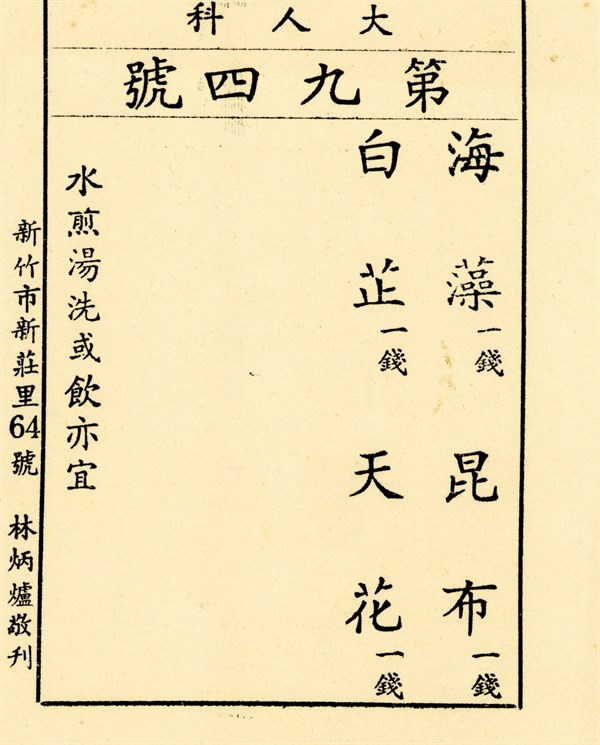 大人科
第九四號
海藻一錢 昆布一錢
白芷一錢 天花一錢
水煎湯洗或飲亦宜
新竹市新莊里64號 林炳爐敬刊